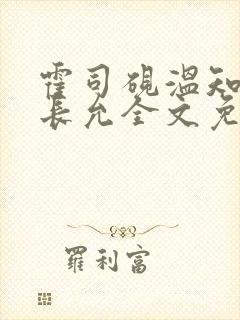 霍司砚温知
長允全文免
羅利富